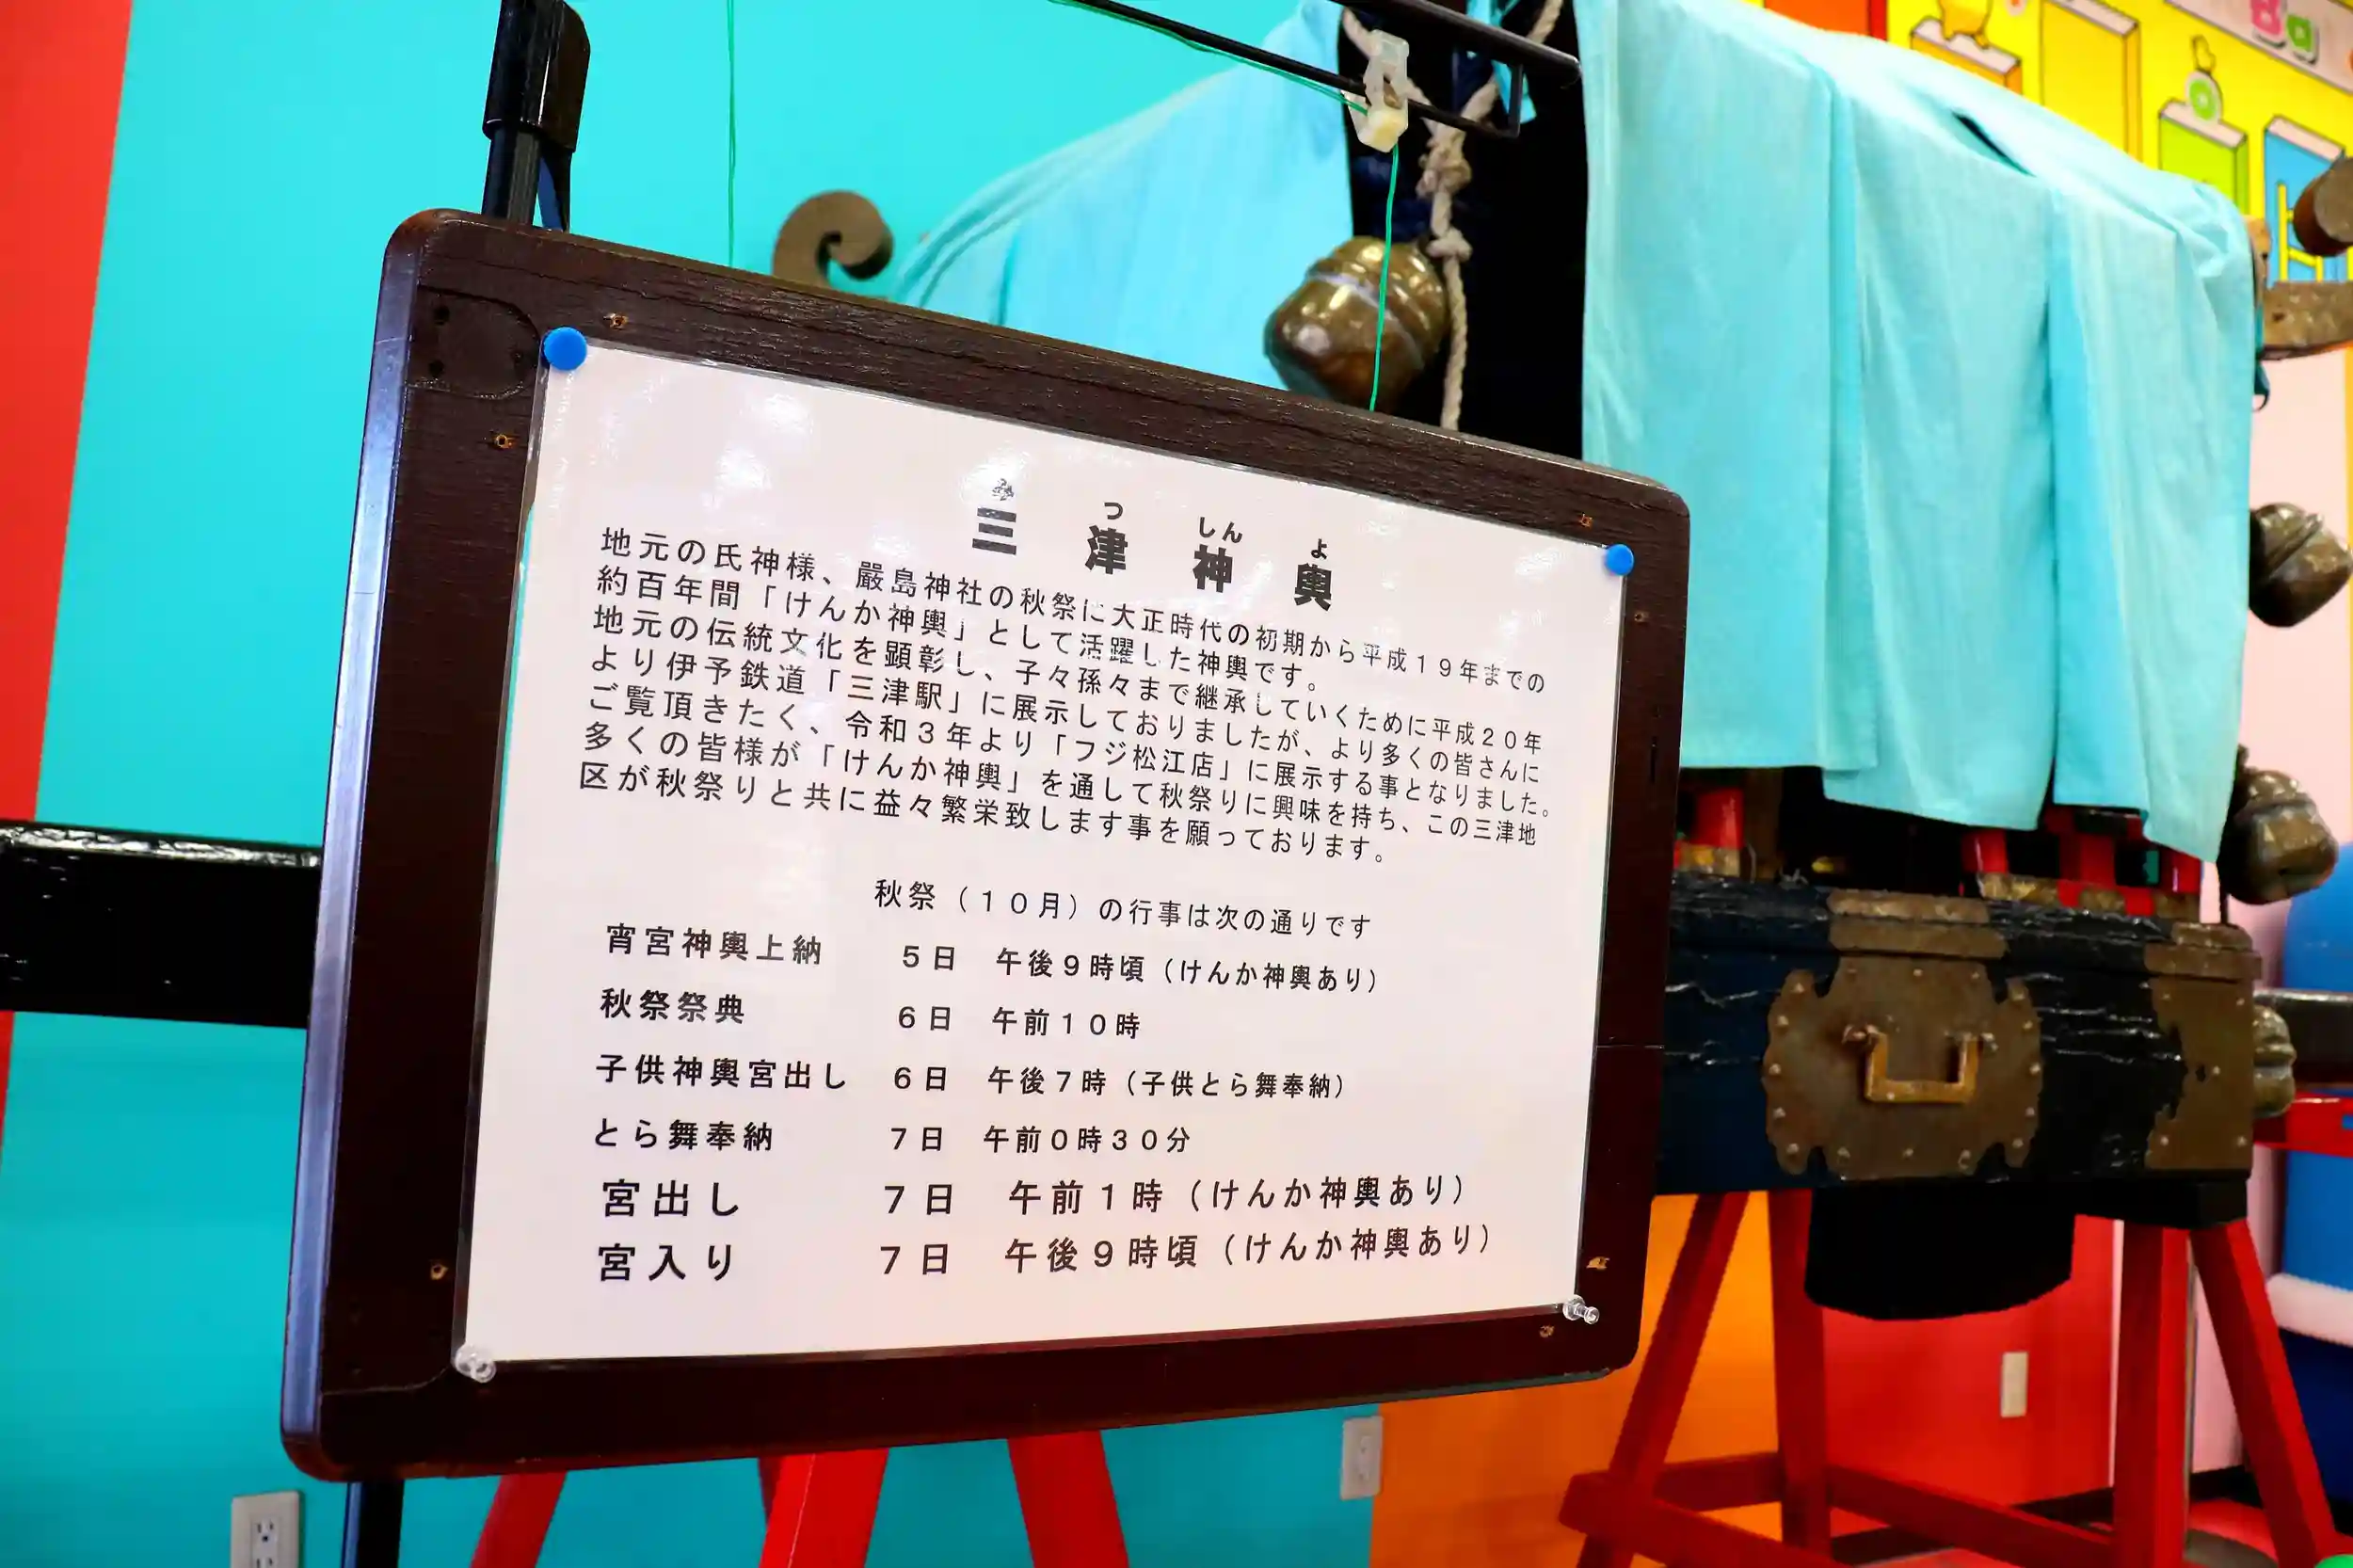 み つ しん よ
三津神輿
地元の氏神様、嚴島神社の秋祭に大正時代の初期から平成19年までの
約百年間「けんか神輿」として活躍した神輿です。
地元の伝統文化を顕彰し、子々孫々まで継承していくために平成20年
より伊予鉄道「三津駅」に展示しておりましたが、より多くの皆さんに
ご覧頂きたく、令和3年より「フジ松江店」に展示する事となりました。
多くの皆様が「けんか神輿」を通して秋祭りに興味を持ち、この三津地
区が秋祭りと共に益々繁栄致します事を願っております。
秋祭（10月）の行事は次の通りです
宵宮神輿上納 5日 午後9時頃（けんか神輿あり）
秋祭祭典 6日 午前10時
子供神輿宮出し 6日 午後7時（子供とら舞奉納）
とら舞奉納 7日 午前0時30分
宮出し 7日 午前1時（けんか神輿あり）
宮入り 7日 午後9時頃（けんか神輿あり）